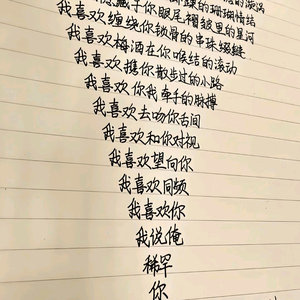 藏于你眼尾褶皱里的星河
我喜欢缠绕你锁骨的串珠
我喜欢梅酒在你喉结的滚动
我喜欢携你散步过的小路
我喜欢你我牵手的脉搏
我喜欢去吻你舌间
我喜欢和你对视
我喜欢望向你
我喜欢同频
我喜欢你
我说俺
稀罕
你